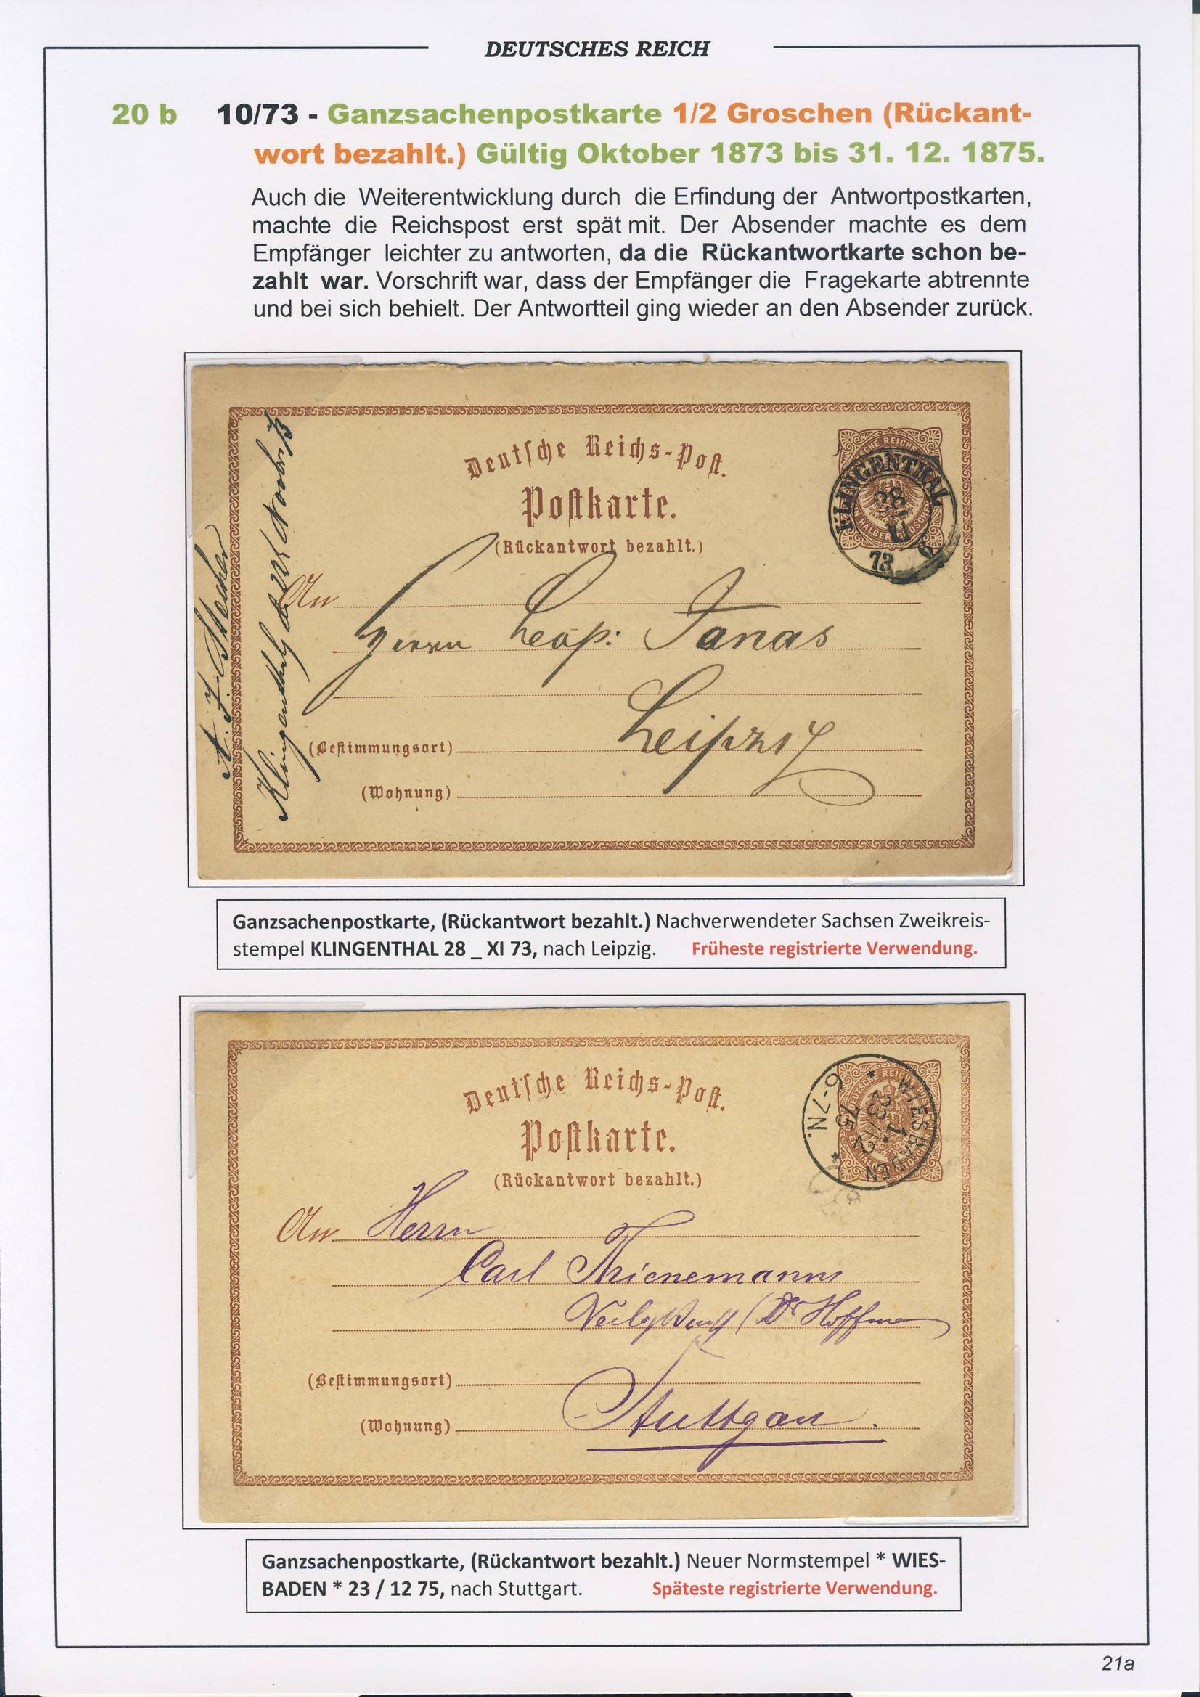 DEUTSCHES REICH
20 b 10/73 - Ganzsachenpostkarte 1/2 Groschen (Rückant-
wort bezahlt.) Gültig Oktober 1873 bis 31. 12. 1875.
Auch die Weiterentwicklung durch die Erfindung der Antwortpostkarten,
machte die Reichspost erst spät mit. Der Absender machte es dem
Empfänger leichter zu antworten, da die Rückantwortkarte schon be-
zahlt war. Vorschrift war, dass der Empfänger die Fragekarte abtrennte
und bei sich behielt. Der Antwortteil ging wieder an den Absender zurück.
Deutsche Reichs-Post.
Postkarte.
(Rückantwort bezahlt.)
KLINGENTHAL
28
XI
73 6
An
Herrn Leop: Janas
Leipzig
(Bestimmungsort)
(Wohnung)
Klingenthal
Ganzsachenpostkarte, (Rückantwort bezahlt.) Nachverwendeter Sachsen Zweikreis-
stempel KLINGENTHAL 28 _ XI 73, nach Leipzig. Früheste registrierte Verwendung.
Deutsche Reichs-Post.
Postkarte.
(Rückantwort bezahlt.)
WIESBADEN
1.
23/12
75
6-7N.
An Herrn
Carl Thienemanns
Dr Hoffmann
(Bestimmungsort)
Stuttgart
(Wohnung)
Ganzsachenpostkarte, (Rückantwort bezahlt.) Neuer Normstempel * WIES-
BADEN * 23 / 12 75, nach Stuttgart. Späteste registrierte Verwendung.
21a